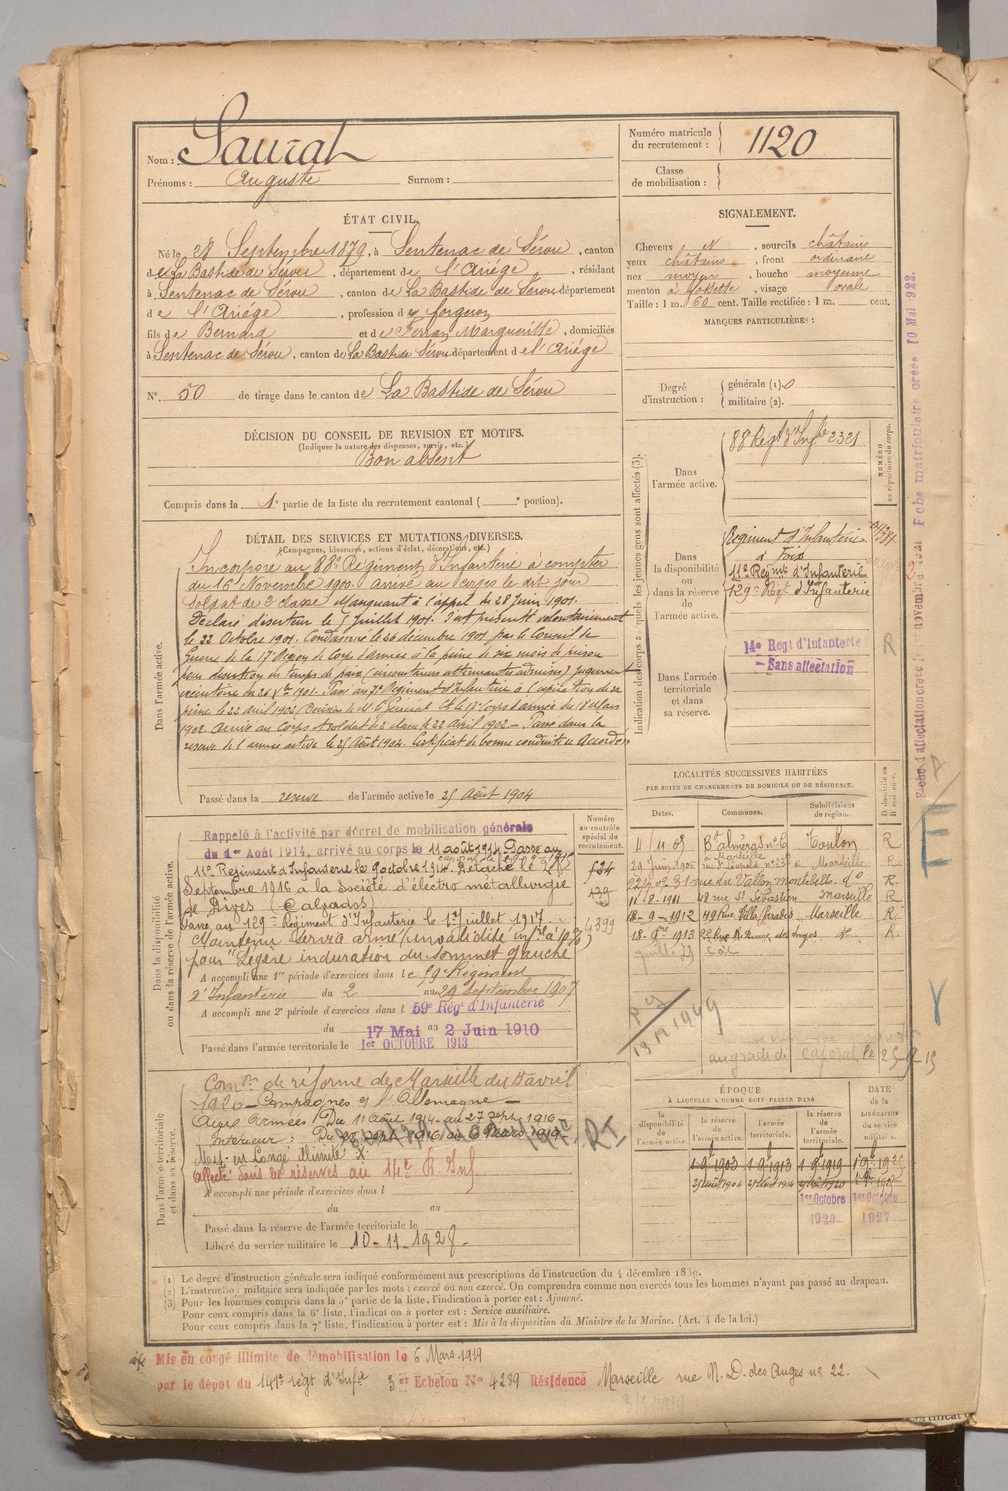 Nom : Saurat
Prénoms : Auguste Surnom :
Numéro matricule du recrutement : 1120
Classe de mobilisation :
ÉTAT CIVIL.
Né le 28 Septembre 1879, à Sentenac de Sérou, canton
de La Bastide de Sérou, département de l'Ariége, résidant
à Sentenac de Sérou, canton de La Bastide de Sérou département
de l'Ariége, profession de forgeron
fils de Bernard et de Ferran Margueritte, domiciliés
à Sentenac de Sérou, canton de La Bastide Sérou département de l'Ariége
N° 50 de tirage dans le canton de La Bastide de Sérou
SIGNALEMENT.
Cheveux N, sourcils châtains
yeux châtains, front ordinaire
nez moyen, bouche moyenne
menton à fossette, visage ovale
Taille : 1 m. 60 cent. Taille rectifiée : 1 m. cent.
MARQUES PARTICULIÈRES :
Degré d'instruction : générale (1). 0
militaire (2).
DÉCISION DU CONSEIL DE REVISION ET MOTIFS.
(Indiquer la nature des dispenses, sursis, etc.)
Bon absent
Compris dans la 1e partie de la liste du recrutement cantonal ( e portion).
DÉTAIL DES SERVICES ET MUTATIONS DIVERSES.
(Campagnes, blessures, actions d'éclat, décorations, etc.)
Dans l'armée active.
Incorporé au 88e Régiment d'Infanterie à compter
du 16 Novembre 1900. Arrivé au corps le dit jour
Soldat de 2e classe. Manquant à l'appel du 28 Juin 1901.
Déclaré déserteur le 5 Juillet 1901. S'est présenté volontairement
le 22 Octobre 1901. Condamné le 20 décembre 1901 par le Conseil de
Guerre de la 17e Région de Corps d'armée à la peine de six mois de prison
pour désertion en temps de paix (circonstances atténuantes admises) jugement
exécutoire du 1901. Passé au Régiment d'Infanterie à l'expiration de sa
peine le 22 avril 1902 (Décision de M. le Général Ct le 17e Corps d'armée du 18 Mars
1902. Arrivé au Corps et soldat de 2e classe le 22 Avril 1902 - Passé dans la
réserve de l'armée active le 25 Août 1904. Certificat de bonne conduite Accordé
Passé dans la réserve de l'armée active le 25 Août 1904
Indication des corps auxquels les jeunes gens sont affectés (3).
NUMÉRO au répertoire du corps.
Dans l'armée active.
88e Régt d'Infie 2321
Dans la disponibilité ou dans la réserve de l'armée active.
Régiment d'Infanterie
à Foix
11e Régimt d'Infanterie
129e Régt d'Infanterie
Dans l'armée territoriale et dans sa réserve.
14e Régt d'Infanterie
- Sans affectation
R
LOCALITÉS SUCCESSIVES HABITÉES
PAR SUITE DE CHANGEMENTS DE DOMICILE OU DE RÉSIDENCE.
Dates. Communes. Subdivisions de région. D domicile ou R résidence.
Toulon R
29 Juin 1905 à Marseille R
31 rue du Vallon Montebello do R
11/8/1911 48 rue St Sébastien Marseille R
8-9-1912 Marseille R.
18-9-1913 22 Rue N. Dame des Anges do R.
Dans la disponibilité ou dans la réserve de l'armée active.
Numéro au contrôle spécial du recrutement.
Rappelé à l'activité par décret de mobilisation générale
du 1er Août 1914, arrivé au corps le 11 août 1914 Passé au
11e Régiment d'Infanterie le 9 octobre 1914. Détaché le 28
Septembre 1916 à la Société d'électro métallurgie
de Dives (Calvados)
Passé au 129e Régiment d'Infanterie le 1er juillet 1917.
Maintenu service armé (invalidité infre à 10%)
pour "légère induration du sommet gauche
4399
A accompli une 1re période d'exercices dans le 59e Régiment
d'Infanterie du 2 au 29 Septembre 1907
A accompli une 2e période d'exercices dans l 59e Régt d'Infanterie
du 17 Mai au 2 Juin 1910
Passé dans l'armée territoriale le 1er OCTOBRE 1913
au grade de caporal le 25-9-15
Dans l'armée territoriale et dans sa réserve.
Comon de réforme de Marseille du avril
1920 - Campagnes et l'Allemagne -
Aux Armées : Du 11 août 1914 - au 27 sept. 1916 -
Intérieur : Du 28 sept. 1916 au 6 Mars 1919
Mis en Congé illimité
Affecté dans les réserves au 14e R. Inf.
A accompli une période d'exercices dans l
du au
Passé dans la réserve de l'armée territoriale le
Libéré du service militaire le 10-11-1928-
ÉPOQUE
À LAQUELLE L'HOMME DOIT PASSER DANS
la disponibilité de l'armée active. la réserve de l'armée active. l'armée territoriale. la réserve de l'armée territoriale. DATE DE LA LIBÉRATION du service militaire.
1 9bre 1903 1 9bre 1913 1 9bre 1919
25 août 1904 25 août 1914 25 août 1920
1er Octobre 1er Octobre
1920 1927
(1) Le degré d'instruction générale sera indiqué conformément aux prescriptions de l'instruction du 4 décembre 1889.
(2) L'instruction militaire sera indiquée par les mots : exercé ou non exercé. On comprendra comme non exercés tous les hommes n'ayant pas passé au drapeau.
(3) Pour les hommes compris dans la 5e partie de la liste, l'indication à porter est : Ajourné.
Pour ceux compris dans la 6e liste, l'indication à porter est : Service auxiliaire.
Pour ceux compris dans la 7e liste, l'indication à porter est : Mis à la disposition du Ministre de la Marine. (Art. 4 de la loi.)
Mis en congé illimité de démobilisation le 6 Mars 1919
par le dépot du 141e régt d'Infie 3 eme Echelon No 4289 Résidence Marseille rue N. D. des Anges no 22.